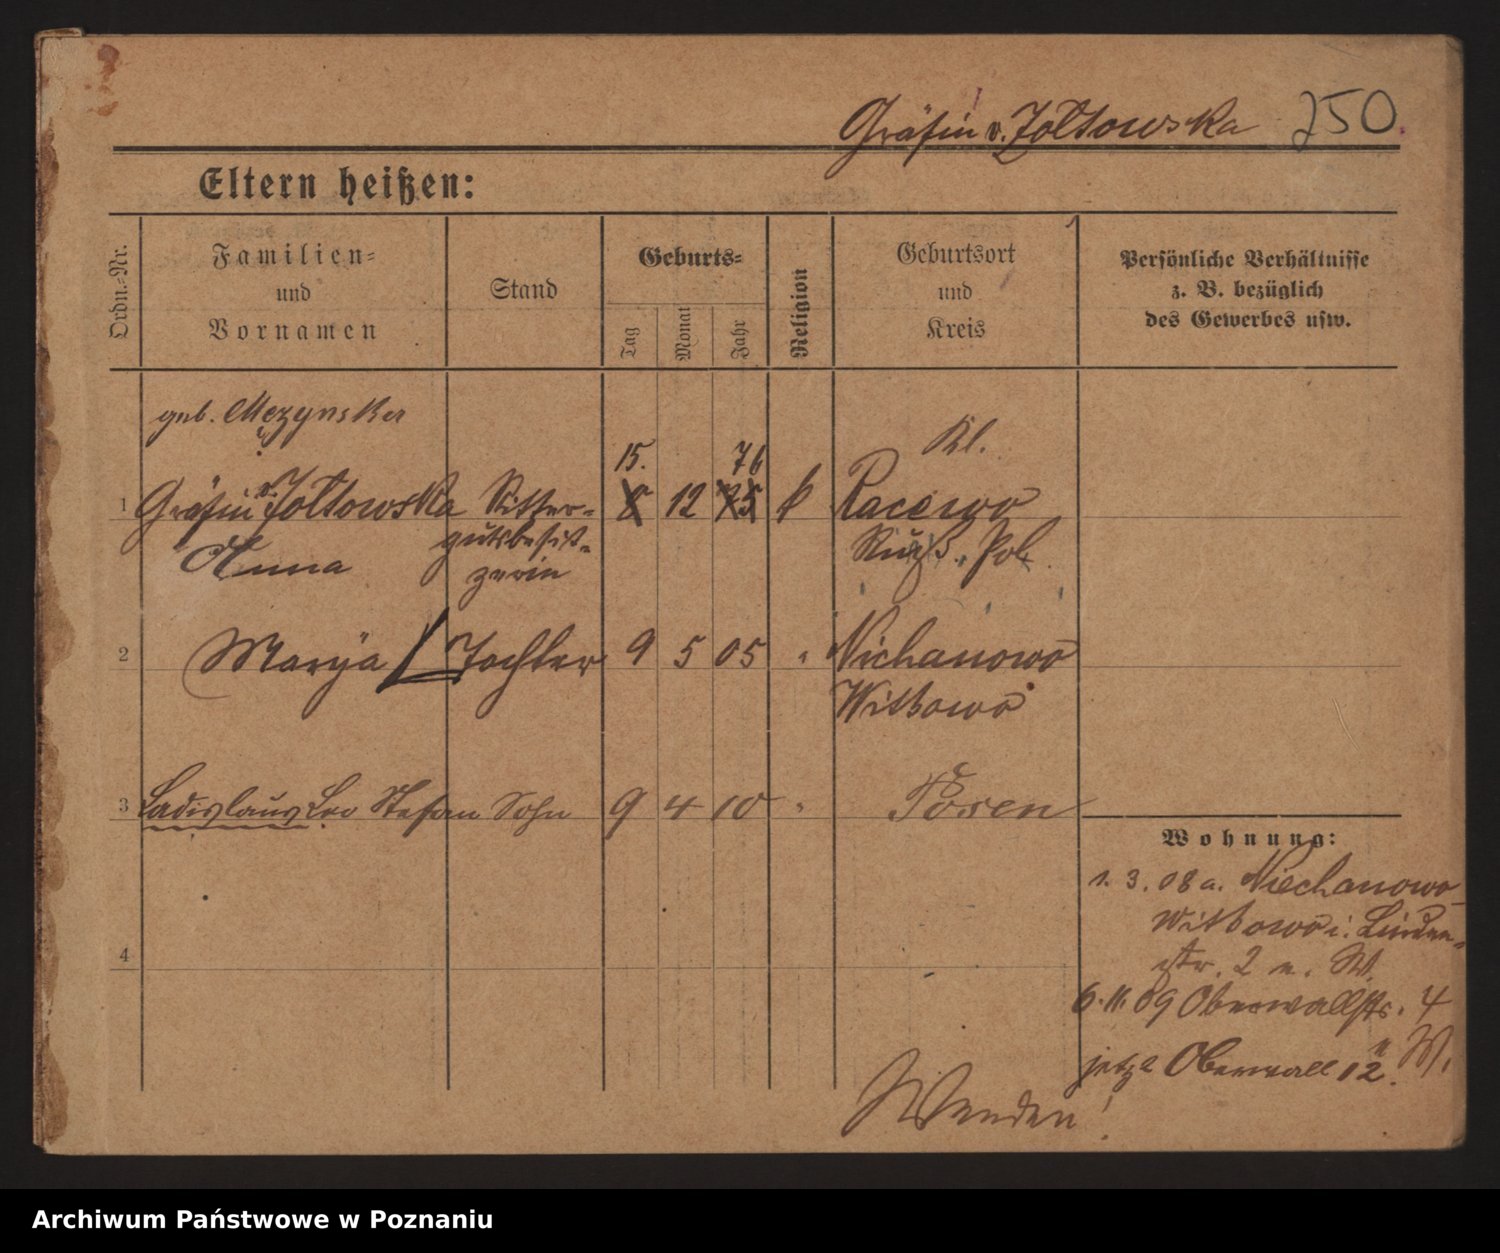 Gräfin v. Żółtowska 250
Eltern heißen:
Ordn.-Nr.
Familien-
und
Vornamen
Stand
Geburts-
Tag
Monat
Jahr
Religion
Geburtsort
und
Kreis
Persönliche Verhältnisse
z. B. bezüglich
des Gewerbes usw.
geb. Męzynska
15. 76 Kl.
1 Gräfin v. Żółtowska Ritter- 12 25 k Racewo
gutsbesit- Ruß. Pol.
Anna zerin
2 Marya Tochter 9 5 05 " Nichanowo
Witkowo
3 Ladislaus Leo Stefan Sohn 9 4 10 " Posen
4
Wohnung:
1. 3. 08 a. Niechanowo
Witkowo i. Linden-
str. 2 n. W.
6. 11. 09 Oberwallstr. 4
W.
jetzt Oberwall 12.
Wenden!
Archiwum Państwowe w Poznaniu